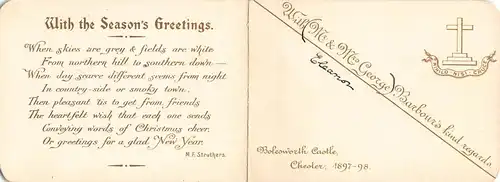 With the Season's Greetings.
When skies are grey & fields are white
From northern hill to southern down—
When day scarce different seems from night
In country-side or smoky town.
Then pleasant 'tis to get from friends
The heartfelt wish that each one sends
Conveying words of Christmas cheer.
Or greetings for a glad New Year.
M.F. Struthers.
With (Mr & Mrs George) Barbour's kind regards.
Eleanor
NIHIL NISI CRUCE
Bolesworth Castle,
Chester, 1897-98.